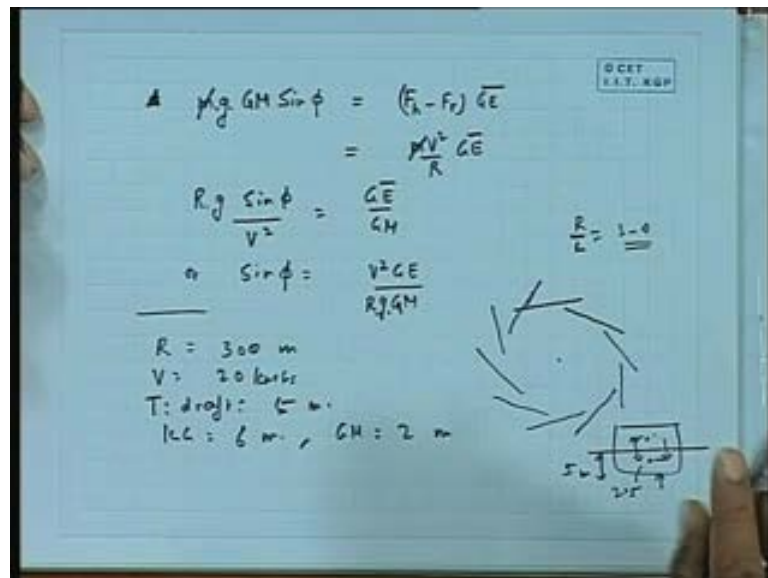 © CET
I.I.T. KGP
Δ g GM Sin φ = (Fh - Fr) GE
= ΔV² / R GE
R g Sin φ / V² = GE / GM
or Sin φ = V² GE / R g. GM
R/L = 3-0
R = 300 m
V = 20 knots
T: draft: 5 m.
KG = 6 m., GM = 2 m
5 m
2.5